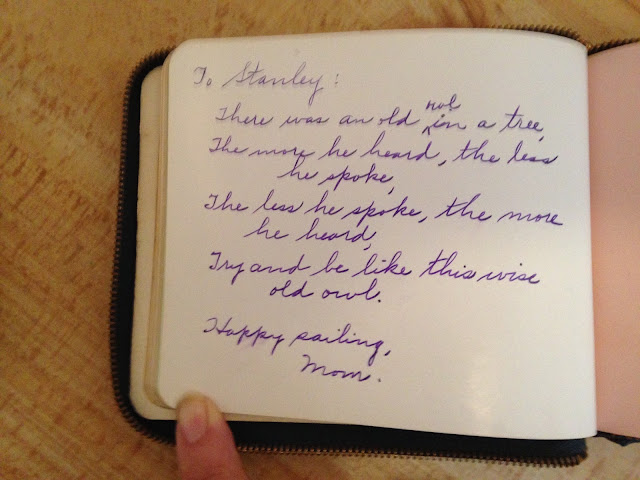 To Stanley:
There was an old owl in a tree,
The more he heard, the less
he spoke,
The less he spoke, the more
he heard,
Try and be like this wise
old owl.
Happy sailing,
Mom.